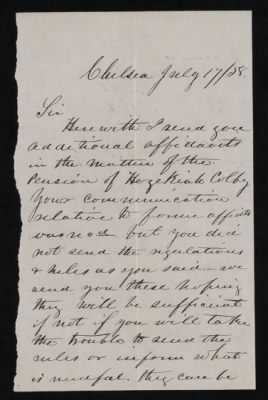 Chelsea July 17/38.
Sir
Herewith I send you
additional affidavits
in the matter of the
Pension of Hezekiah Colby
Your communication
relative to former affidts
was rec'd but you did
not send the regulations
& rules as you said – we
send you these hoping
they will be sufficient
if not if you will take
the trouble to send the
rules or inform what
is needful they can be